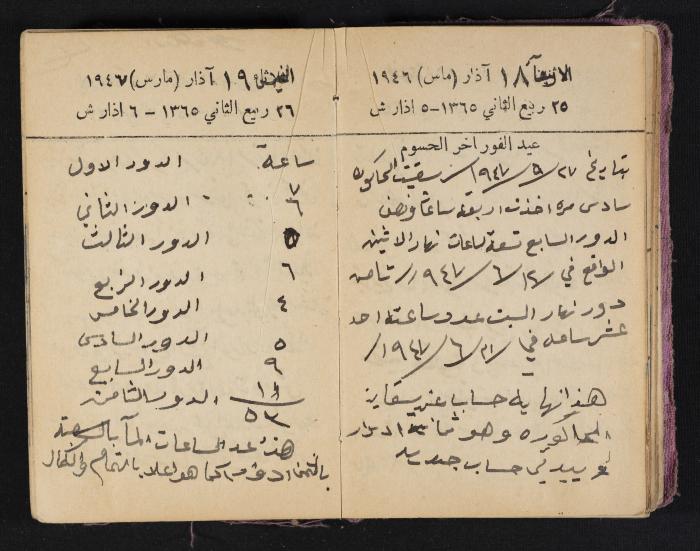 الاثنين ١٨ آذار (مارس) ١٩٤٦
٢٥ ربيع الثاني ١٣٦٥ - ٥ اذار ش
عيد الفور اخر الحسوم
بتاريخ ٢٧ / ٥ / ١٩٤٧ / سقيت الحاكوره
سادس مره اخذت اربعة ساعات ونصف
الدور السابع تسعة ساعات نهار الاثنين
الواقع في ١٢ / ٦ / ٩٤٧ / ثامن
دور نهار السبت عدد ساعته احد
عشر ساعه في / ٢١ / ٦ / ١٩٤٧ /
هذا نهاية حساب عن سقاية
الحاكوره وهو ثمانية ادوار
حساب جديد
١٩ آذار (مارس) ١٩٤٧
٢٦ ربيع الثاني ١٣٦٥ - ٦ اذار ش
ساعة الدور الاول
٧
٦ الدور الثاني
٥ الدور الثالث
٦ الدور الرابع
٤ الدور الخامس
٥ الدور السادس
٩ الدور السابع
١١ الدور الثامن
٥٣
هذا عدد الساعات
كما هو اعلا بالتمام والكمال